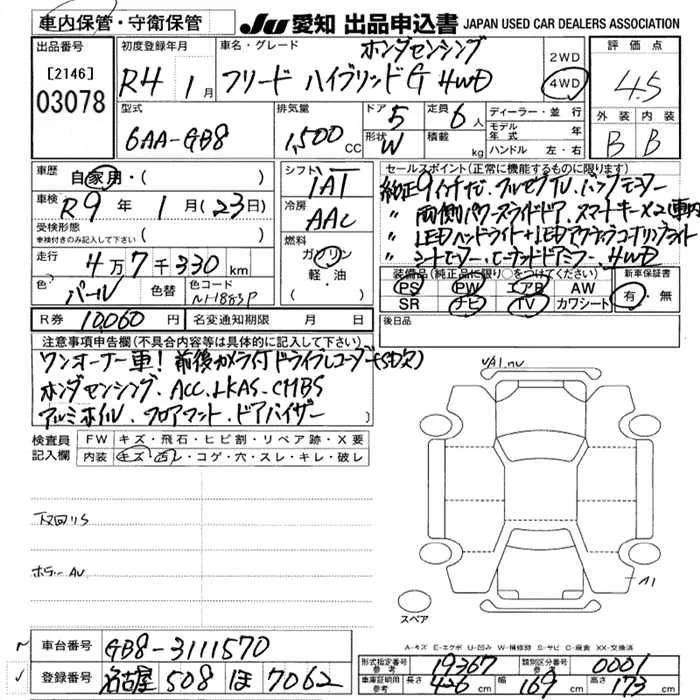 車内保管・守衛保管
JU 愛知 出品申込書 JAPAN USED CAR DEALERS ASSOCIATION
出品番号
[2146]
03078
初度登録年月
R4 1月
車名・グレード
ホンダセンシング
フリード ハイブリッドG 4WD
2WD
4WD
評価点
4.5
外装 内装
B B
型式
6AA-GB8
排気量
1,500 CC
ドア 5
定員 6人
形状 W
積載 kg
ディーラー・並行
モデル年式 年
ハンドル 左・右
車歴
自家用・( )
車検
R9年 1月(23日)
受検形態
車検付きのみ記入して下さい ( )
走行
4万7千330 km
シフト
IAT
冷房
AAC
燃料
ガソリン
軽・油
( )
色 パール
色替
色コード
NH883P
R券 10,060円
名変通知期限 月 日
セールスポイント(正常に機能するものに限ります)
純正9インチナビ、フルセグTV、バックモニター
〃 両側パワースライドドア、スマートキー×2(車内)
〃 LEDヘッドライト+LEDアクティブコーナリングライト
〃 シートヒーター、ヒーテッドドアミラー、4WD
装備品(純正品に限り○をつけてください)
PS PW エアB AW
SR ナビ TV カワシート
新車保証書
有・無
後日品
注意事項申告欄(不具合内容等は具体的に記入して下さい)
ワンオーナー車! 前後カメラ付ドライブレコーダー(SD欠)
ホンダセンシング、ACC、LKAS、CMBS
アルミホイル、フロアマット、ドアバイザー
検査員記入欄
FW キズ・飛石・ヒビ割・リペア跡・X要
内装 キズ・凹レ・コゲ・穴・スレ・キレ・破レ
下回りS
ボデーAU
A1
スペア
A-キズ E-エクボ U-凹み W-補修跡 S-サビ C-腐食 XX-交換済
車台番号 GB8-3111570
登録番号 名古屋 508 ほ 7062
形式指定番号 参考 19367
類別区分番号 参考 0001
車庫証明用 参考 長さ 426 cm 幅 169 cm 高さ 173 cm